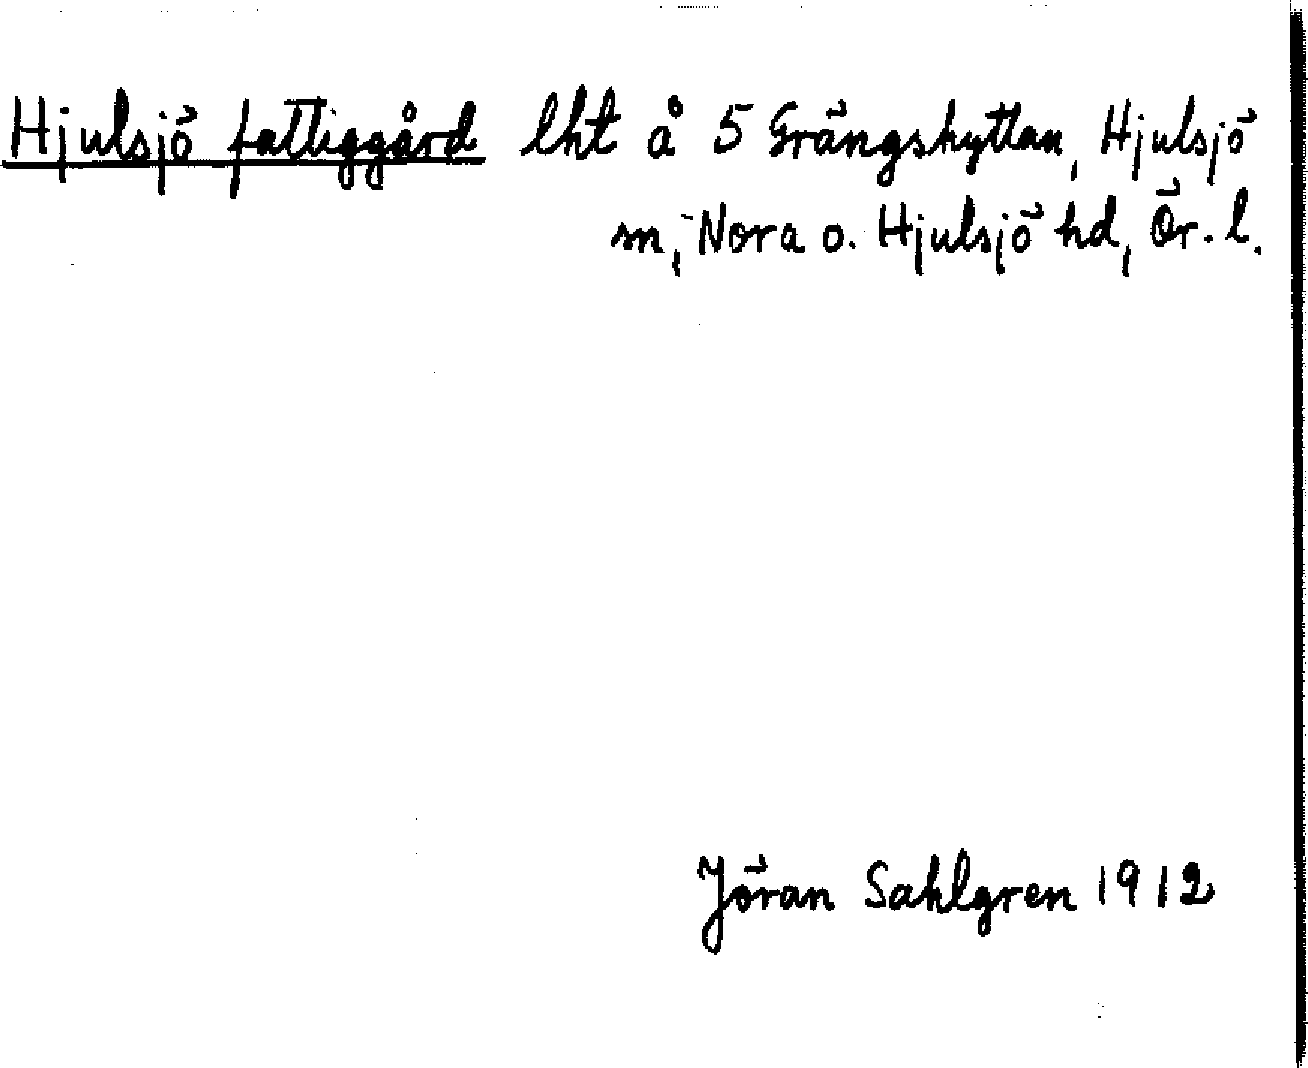 Hjulsjö fattiggård lht å 5 Grängshyttan, Hjulsjö
sn, Nora o. Hjulsjö hd, Ör. l.
Jöran Sahlgren 1912